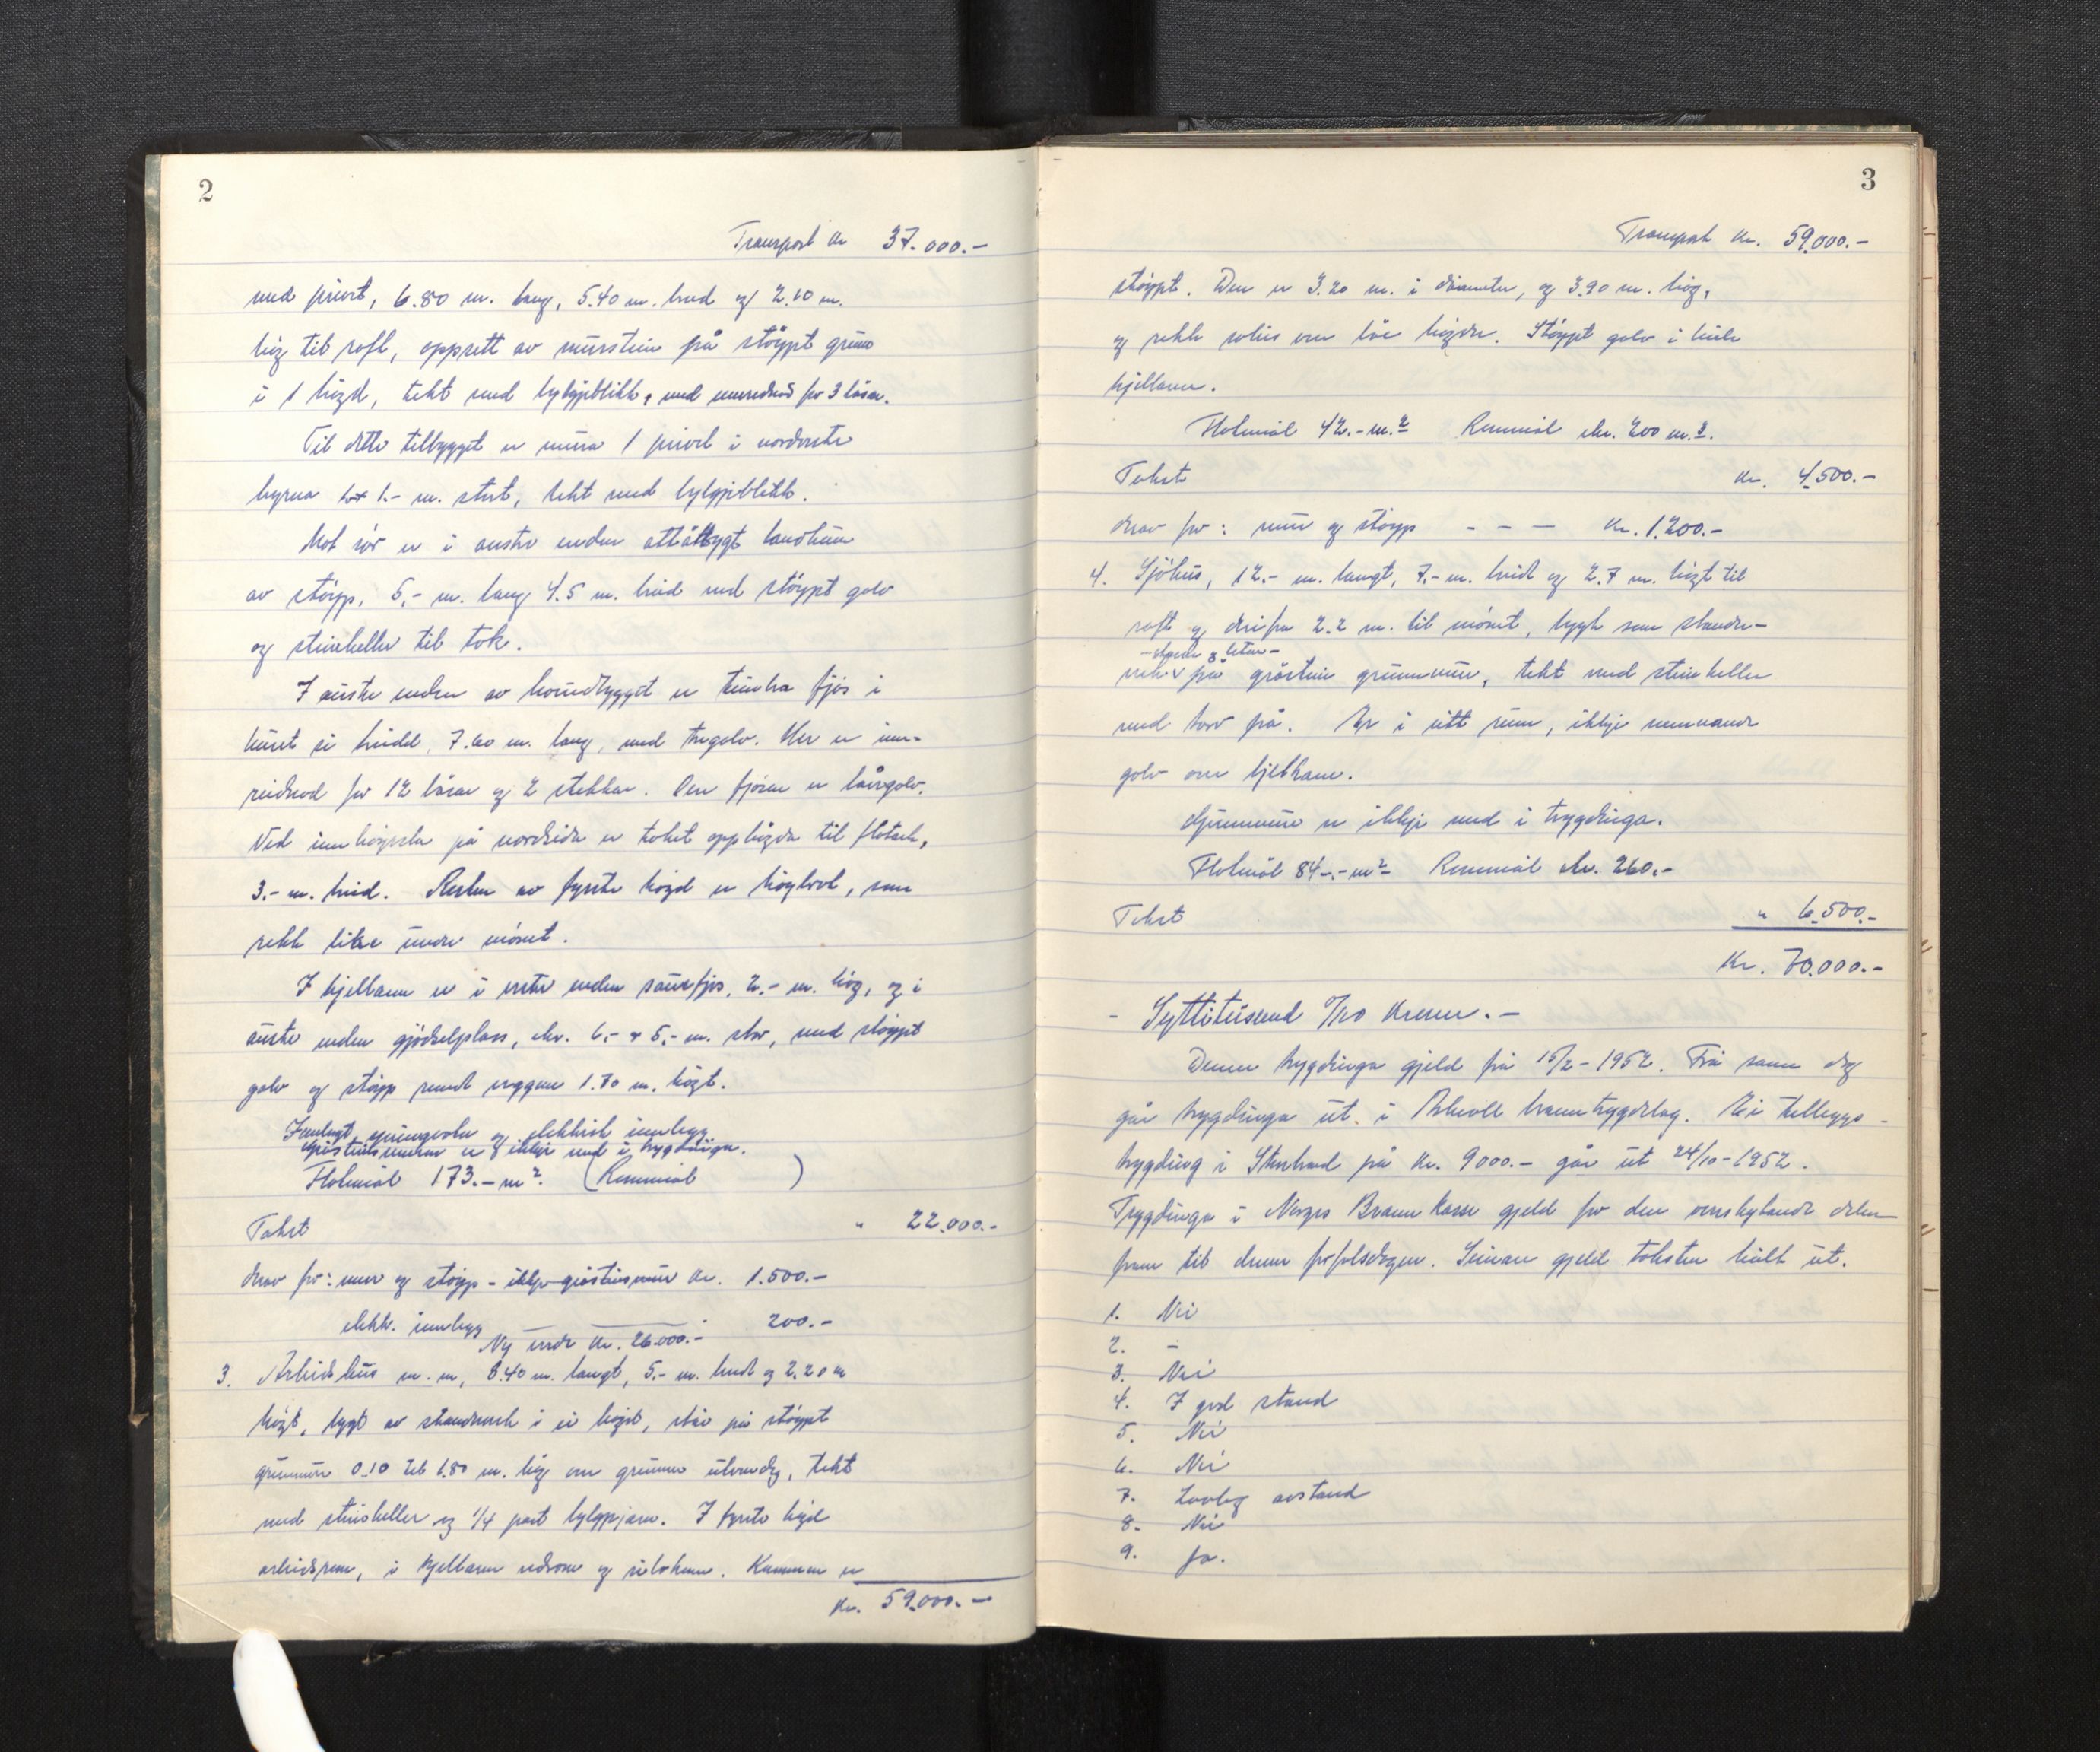 2
Transport kr 37.000.-
med privet, 6.80 m. lang, 5.40 m. breid og 2.10 m.
høg til roft, oppsett av murstein på støypt grunn
i 1 høgd, tekt med bylgjeblikk, med innreidnad for 3 båsar.
Til dette tilbygget er mura 1 privet i nordaustre
hyrna 1.- m. stort, tekt med bylgjeblikk.
Mot sør er i austre enden attåtbygt landkum
av støyp, 5.- m. lang 4.5 m. breid med støypt golv
og steinheller til tak.
I austre enden av hovudbygget er timbra fjøs i
huset si breidd, 7.60 m. lang, med tregolv. Her er inn-
reidnad for 12 båsar og 2 stekkar. Over fjøsen er låvegolv.
Ved innkøyrsla på nordsida er taket opphøgda til flatark,
3.- m. breid. Resten av fyrste høgd er høybrot, som
rekk like under mønet.
I kjellaren er i vestre enden sauefjøs, 2.- m. høg, og i
austre enden gjødselplass, ekv. 6.- x 5.- m. stor, med støypt
golv og støyp rundt veggene 1.70 m. høgt.
Innlagt springvatn og elektrisk innlegg
Gråsteinsmuren er ikkje med i trygdinga.
Flatemål 173.- m². (Rommål )
Takst " 22.000.-
Herav for: mur og støyp - ikkje gråsteinsmur kr. 1.500.-
elektr. innlegg 200.-
Ny verde kr. 26.000.-
3. Arbeidshus m. m, 8.40 m. langt, 5.- m. breidt og 2.20 m
høgt, bygt av standverk i ei høgd, står på støypt
grunnmur 0.10 til 1.80 m. høg over grunnen utvendig, tekt
med steinheller og 1/4 part bylgjejarn. I fyrste høgd
arbeidsrom, i kjellaren vedrom og silokum. Kummen er
kr. 59.000.-
3
Transport kr. 59.000.-
støypt. Den er 3.20 m. i diameter, og 3.90 m. høg,
og rekk soleis over båe høgder. Støypt golv i heile
kjellaren.
Flatemål 42.- m.² Rommål ekv. 200 m.³.
Takst kr. 4.500.-
Herav for: mur og støyp - - - kr. 1.200.-
4. Sjøhus, 12.- m. langt, 7.- m. breidt og 2.7 m. høgt til
roft og derifrå 2.2 m. til mønet, bygt som standar-
verk på gråstein grunnmur, tekt med steinheller
med torv på. Er i eitt rum, ikkje nemnande
golv over kjellaren.
Grunnmur er ikkje med i trygdinga.
Flatemål 84.- m² Rommål ekv. 260.-
Takst " 6.500.-
Kr. 70.000.-
- Syttitusend 0/00 kroner. -
Denne trygdinga gjeld frå 15/2 - 1952. Frå same dag
går trygdinga ut i branntrygdelag. Ei tilleggs-
trygding i Storbrand på kr. 9000.- går ut 24/10 - 1952.
Trygdinga i Norges Brannkasse gjeld for den overskytande delen
fram til denne forfallsdagen. Seinare gjeld taksten heilt ut.
1. Nei
2. -
3. Nei
4. I god stand
5. Nei
6. Nei
7. Lovleg avstand
8. Nei
9. Ja.